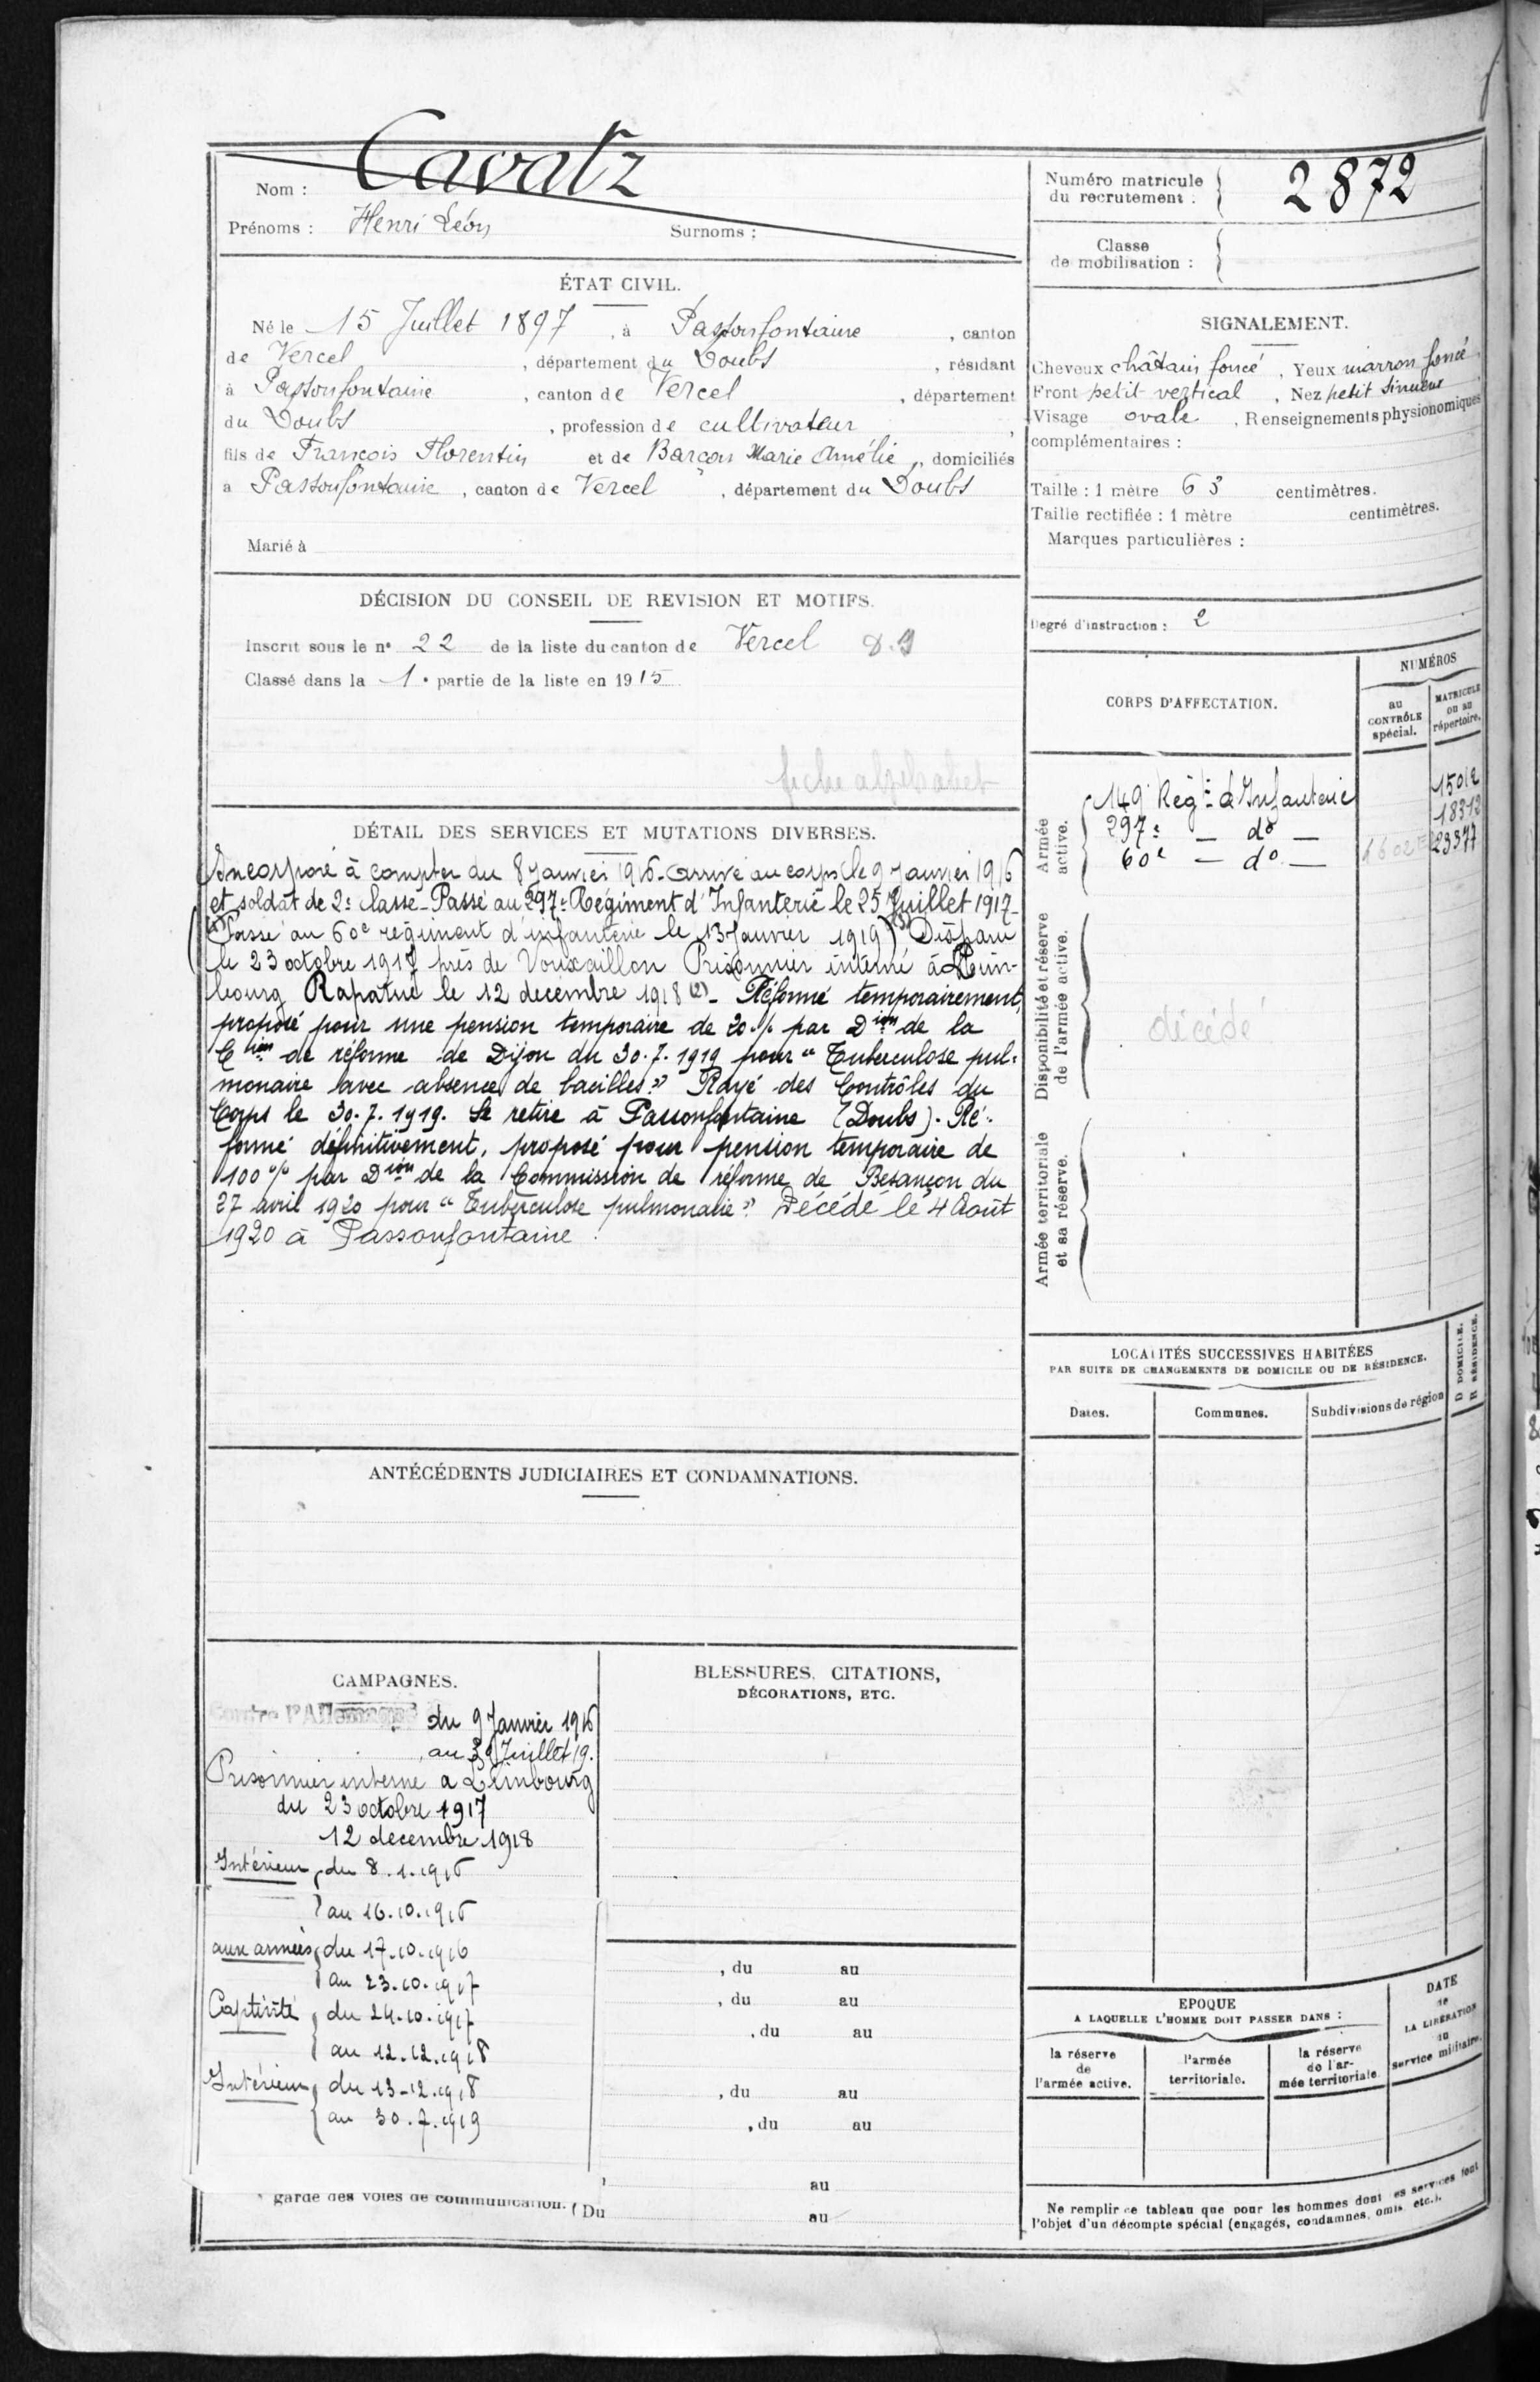 Nom : Cavatz
Prénoms : Henri Léon Surnoms :
Numéro matricule
du recrutement : 2872
Classe
de mobilisation :
ÉTAT CIVIL.
Né le 15 Juillet 1897, à Passonfontaine, canton
de Vercel, département du Doubs, résidant
à Passonfontaine, canton de Vercel, département
du Doubs, profession de cultivateur,
fils de François Florentin et de Barçon Marie Amélie, domiciliés
à Passonfontaine, canton de Vercel, département du Doubs
Marié à
SIGNALEMENT.
Cheveux châtain foncé, Yeux marron foncé
Front petit vertical, Nez petit sinueux
Visage ovale, Renseignements physionomiques
complémentaires :
Taille : 1 mètre 63 centimètres.
Taille rectifiée : 1 mètre centimètres.
Marques particulières :
Degré d'instruction : 2
DÉCISION DU CONSEIL DE REVISION ET MOTIFS.
Inscrit sous le n° 22 de la liste du canton de Vercel
Classé dans la 1e partie de la liste en 1915
fiche alphabet
DÉTAIL DES SERVICES ET MUTATIONS DIVERSES.
Incorporé à compter du 8 Janvier 1916. Arrivé au corps le 9 Janvier 1916
et soldat de 2e classe - Passé au 297e Régiment d'Infanterie le 25 Juillet 1917 -
(Passé au 60e régiment d'infanterie le 13 Janvier 1919) Disparu
le 23 octobre 1917 près de Vauxaillon Prisonnier interné à Lim-
bourg Rapatrié le 12 décembre 1918 (2) - Réformé temporairement,
proposé pour une pension temporaire de 20 % par Dion de la
Cion de réforme de Dijon du 30.7.1919 pour "Tuberculose pul-
monaire avec absence de bacilles." Rayé des Contrôles du
Corps le 30.7.1919. Se retire à Passonfontaine (Doubs). Ré-
formé définitivement, proposé pour pension temporaire de
100 % par Dion de la Commission de réforme de Besançon du
27 avril 1920 pour "Tuberculose pulmonaire" Décédé le 4 Août
1920 à Passonfontaine.
CORPS D'AFFECTATION.
NUMÉROS
au
CONTRÔLE
spécial.
MATRICULE
ou au
répertoire.
Armée
active.
149e Regt d'Infanterie 15012
297e - do - 18312
60e - do - 23377
Disponibilité et réserve
de l'armée active.
décédé
Armée territoriale
et sa réserve.
LOCALITÉS SUCCESSIVES HABITÉES
PAR SUITE DE CHANGEMENTS DE DOMICILE OU DE RÉSIDENCE.
Dates.
Communes.
Subdivisions de région
D DOMICILE.
R RÉSIDENCE.
ANTÉCÉDENTS JUDICIAIRES ET CONDAMNATIONS.
CAMPAGNES.
Contre l'Allemagne du 9 Janvier 1916
au 30 Juillet 19.
Prisonnier interné à Limbourg
du 23 octobre 1917
12 decembre 1918
Intérieur du 8.1.1916
au 16.10.1916
aux armées du 17.10.1916
au 23.10.1917
Captivité du 24.10.1917
au 12.12.1918
Intérieur du 13-12.1918
au 30.7.1919
garde des voies de communication. (Du au
BLESSURES, CITATIONS,
DÉCORATIONS, ETC.
, du au
, du au
, du au
, du au
, du au
au
EPOQUE
A LAQUELLE L'HOMME DOIT PASSER DANS :
la réserve
de
l'armée active.
l'armée
territoriale.
la réserve
de l'ar-
mée territoriale
DATE
de
LA LIBÉRATION
du
service militaire.
Ne remplir ce tableau que pour les hommes dont les services font
l'objet d'un décompte spécial (engagés, condamnés, omis, etc.).